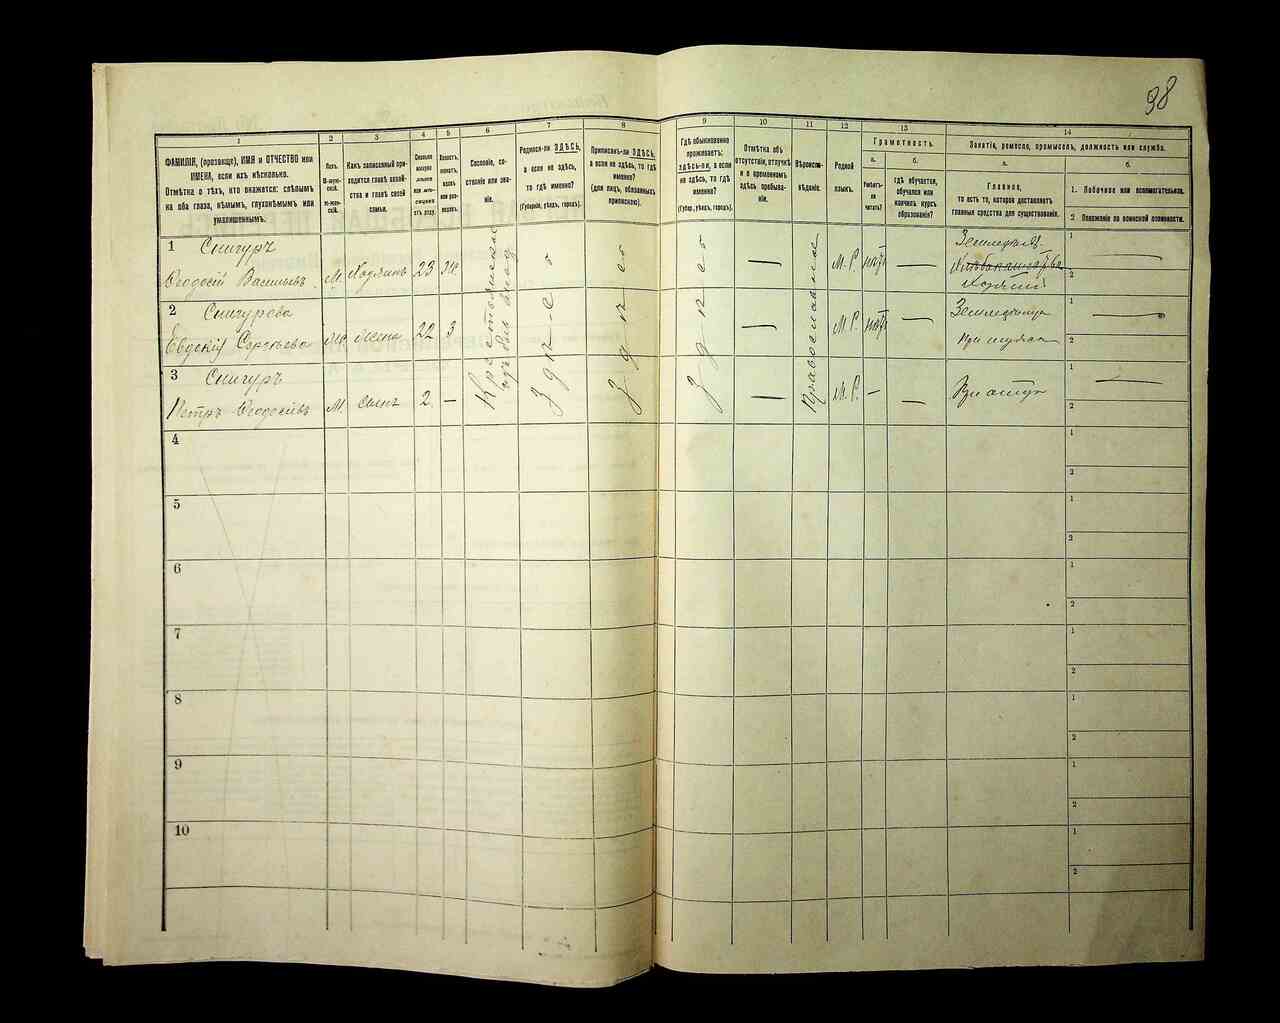 38
1
2
3
4
5
6
7
8
9
10
11
12
13
14
ФАМИЛІЯ, (прозвище), ИМЯ и ОТЧЕСТВО или
ИМЕНА, если ихъ нѣсколько.
Отмѣтка о тѣхъ, кто окажется: слѣпымъ
на оба глаза, нѣмымъ, глухонѣмымъ или
умалишеннымъ.
Полъ.
М-муж-
ской.
Ж-жен-
скій.
Какъ записанный при-
ходится главѣ хозяй-
ства и главѣ своей
семьи.
Сколько
минуло
лѣтъ
Сословіе, со-
стояніе или зва-
ніе.
Родился-ли ЗДѢСЬ,
а если не здѣсь,
то гдѣ именно?
(Губернія, уѣздъ, городъ).
Приписанъ-ли ЗДѢСЬ,
а если не здѣсь, то гдѣ
именно?
(для лицъ, обязанныхъ
припискою).
Гдѣ обыкновенно
проживаетъ:
здѣсь-ли, а если
не здѣсь, то гдѣ
именно?
(Губер., уѣздъ, городъ).
Отмѣтка объ
отсутствіи, отлучкѣ
и о временномъ
здѣсь пребыва-
ніи.
Вѣроиспо-
вѣданіе.
Родной
языкъ.
Грамотность.
а.
Умѣетъ-
ли
читать?
б.
гдѣ обучается,
обучался или
кончилъ курсъ
образованія?
Занятіе, ремесло, промыселъ, должность или служба.
а.
Главное,
то есть то, которое доставляетъ
главныя средства для существованія.
б.
1. Побочное или вспомогательное.
2 Положеніе по воинской повинности.
1 Снигуръ
Ѳеодосій Васильевъ М. Хозяинъ 23 Ж. здѣсь здѣсь здѣсь — М. Р. нѣтъ — 1 — 2
Крестьянинъ
Православное
Земледѣлецъ
Хозяинъ
2 Снигурева
Евдокія Сергѣева Ж. жена 22 З — М. Р. нѣтъ — 1 — 2
Земледѣлица
При мужѣ
3 Снигуръ
Петръ Ѳеодосіевъ М. сынъ 2 — — М. Р. — — При отцѣ 1 — 2
4 1 2
5 1 2
6 1 2
7 1 2
8 1 2
9 1 2
10 1 2